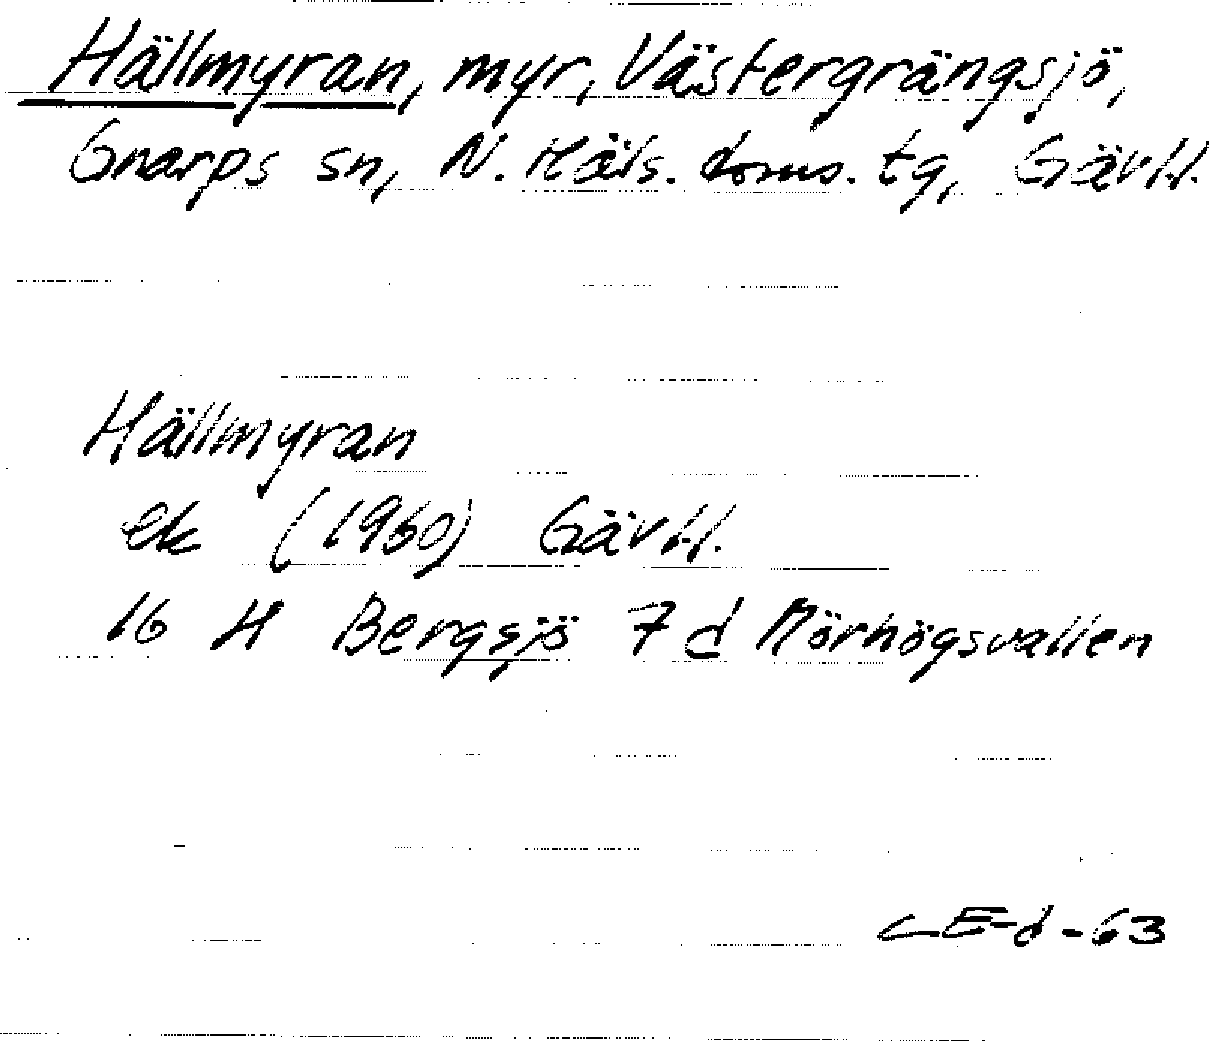 Hällmyran, myr, Västergrängsjö,
Gnarps sn, N. Häls. doms. tg, GävlI.
Hällmyran
ek (1960) GävlI.
16 H Bergsjö 7 d Mörhögsvallen
63